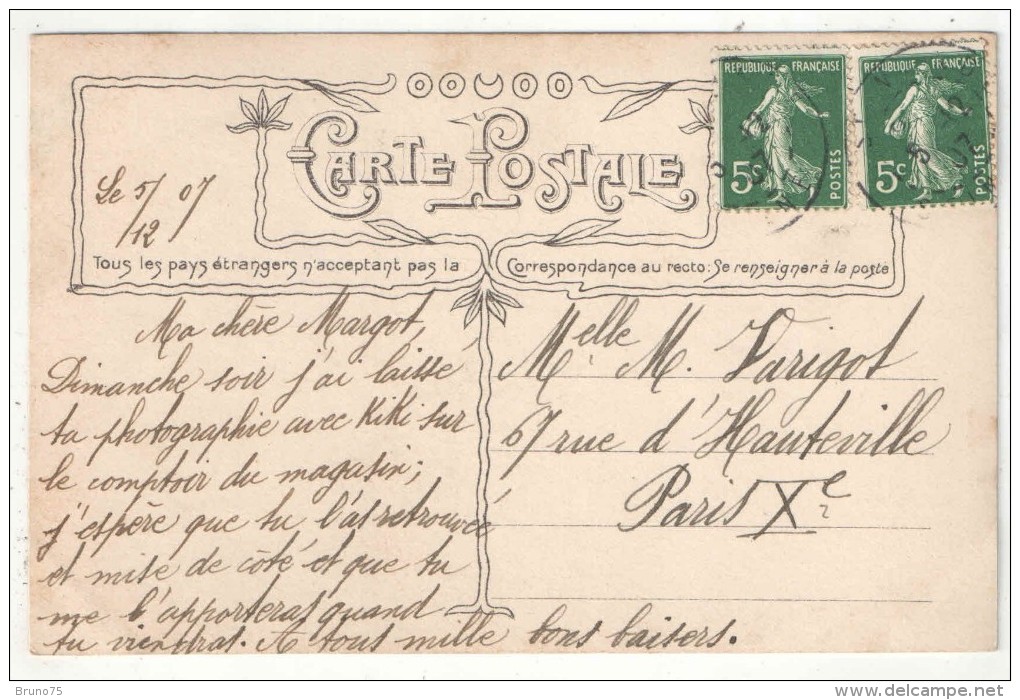 CARTE POSTALE
REPUBLIQUE FRANÇAISE
5c
POSTES
REPUBLIQUE FRANÇAISE
5c
POSTES
Le 5/12 07
Tous les pays étrangers n'acceptant pas la Correspondance au recto: Se renseigner à la poste
Ma chère Margot,
Dimanche soir j'ai laissé
ta photographie avec KiKi sur
le comptoir du magasin;
j'espère que tu l'as retrouvée
et mise de côté et que tu
me l'apporteras quand
tu viendras. A tous mille bons baisers.
Melle M. Varigot
67 rue d'Hauteville
Paris Xe
Bruno75
delcampe.net